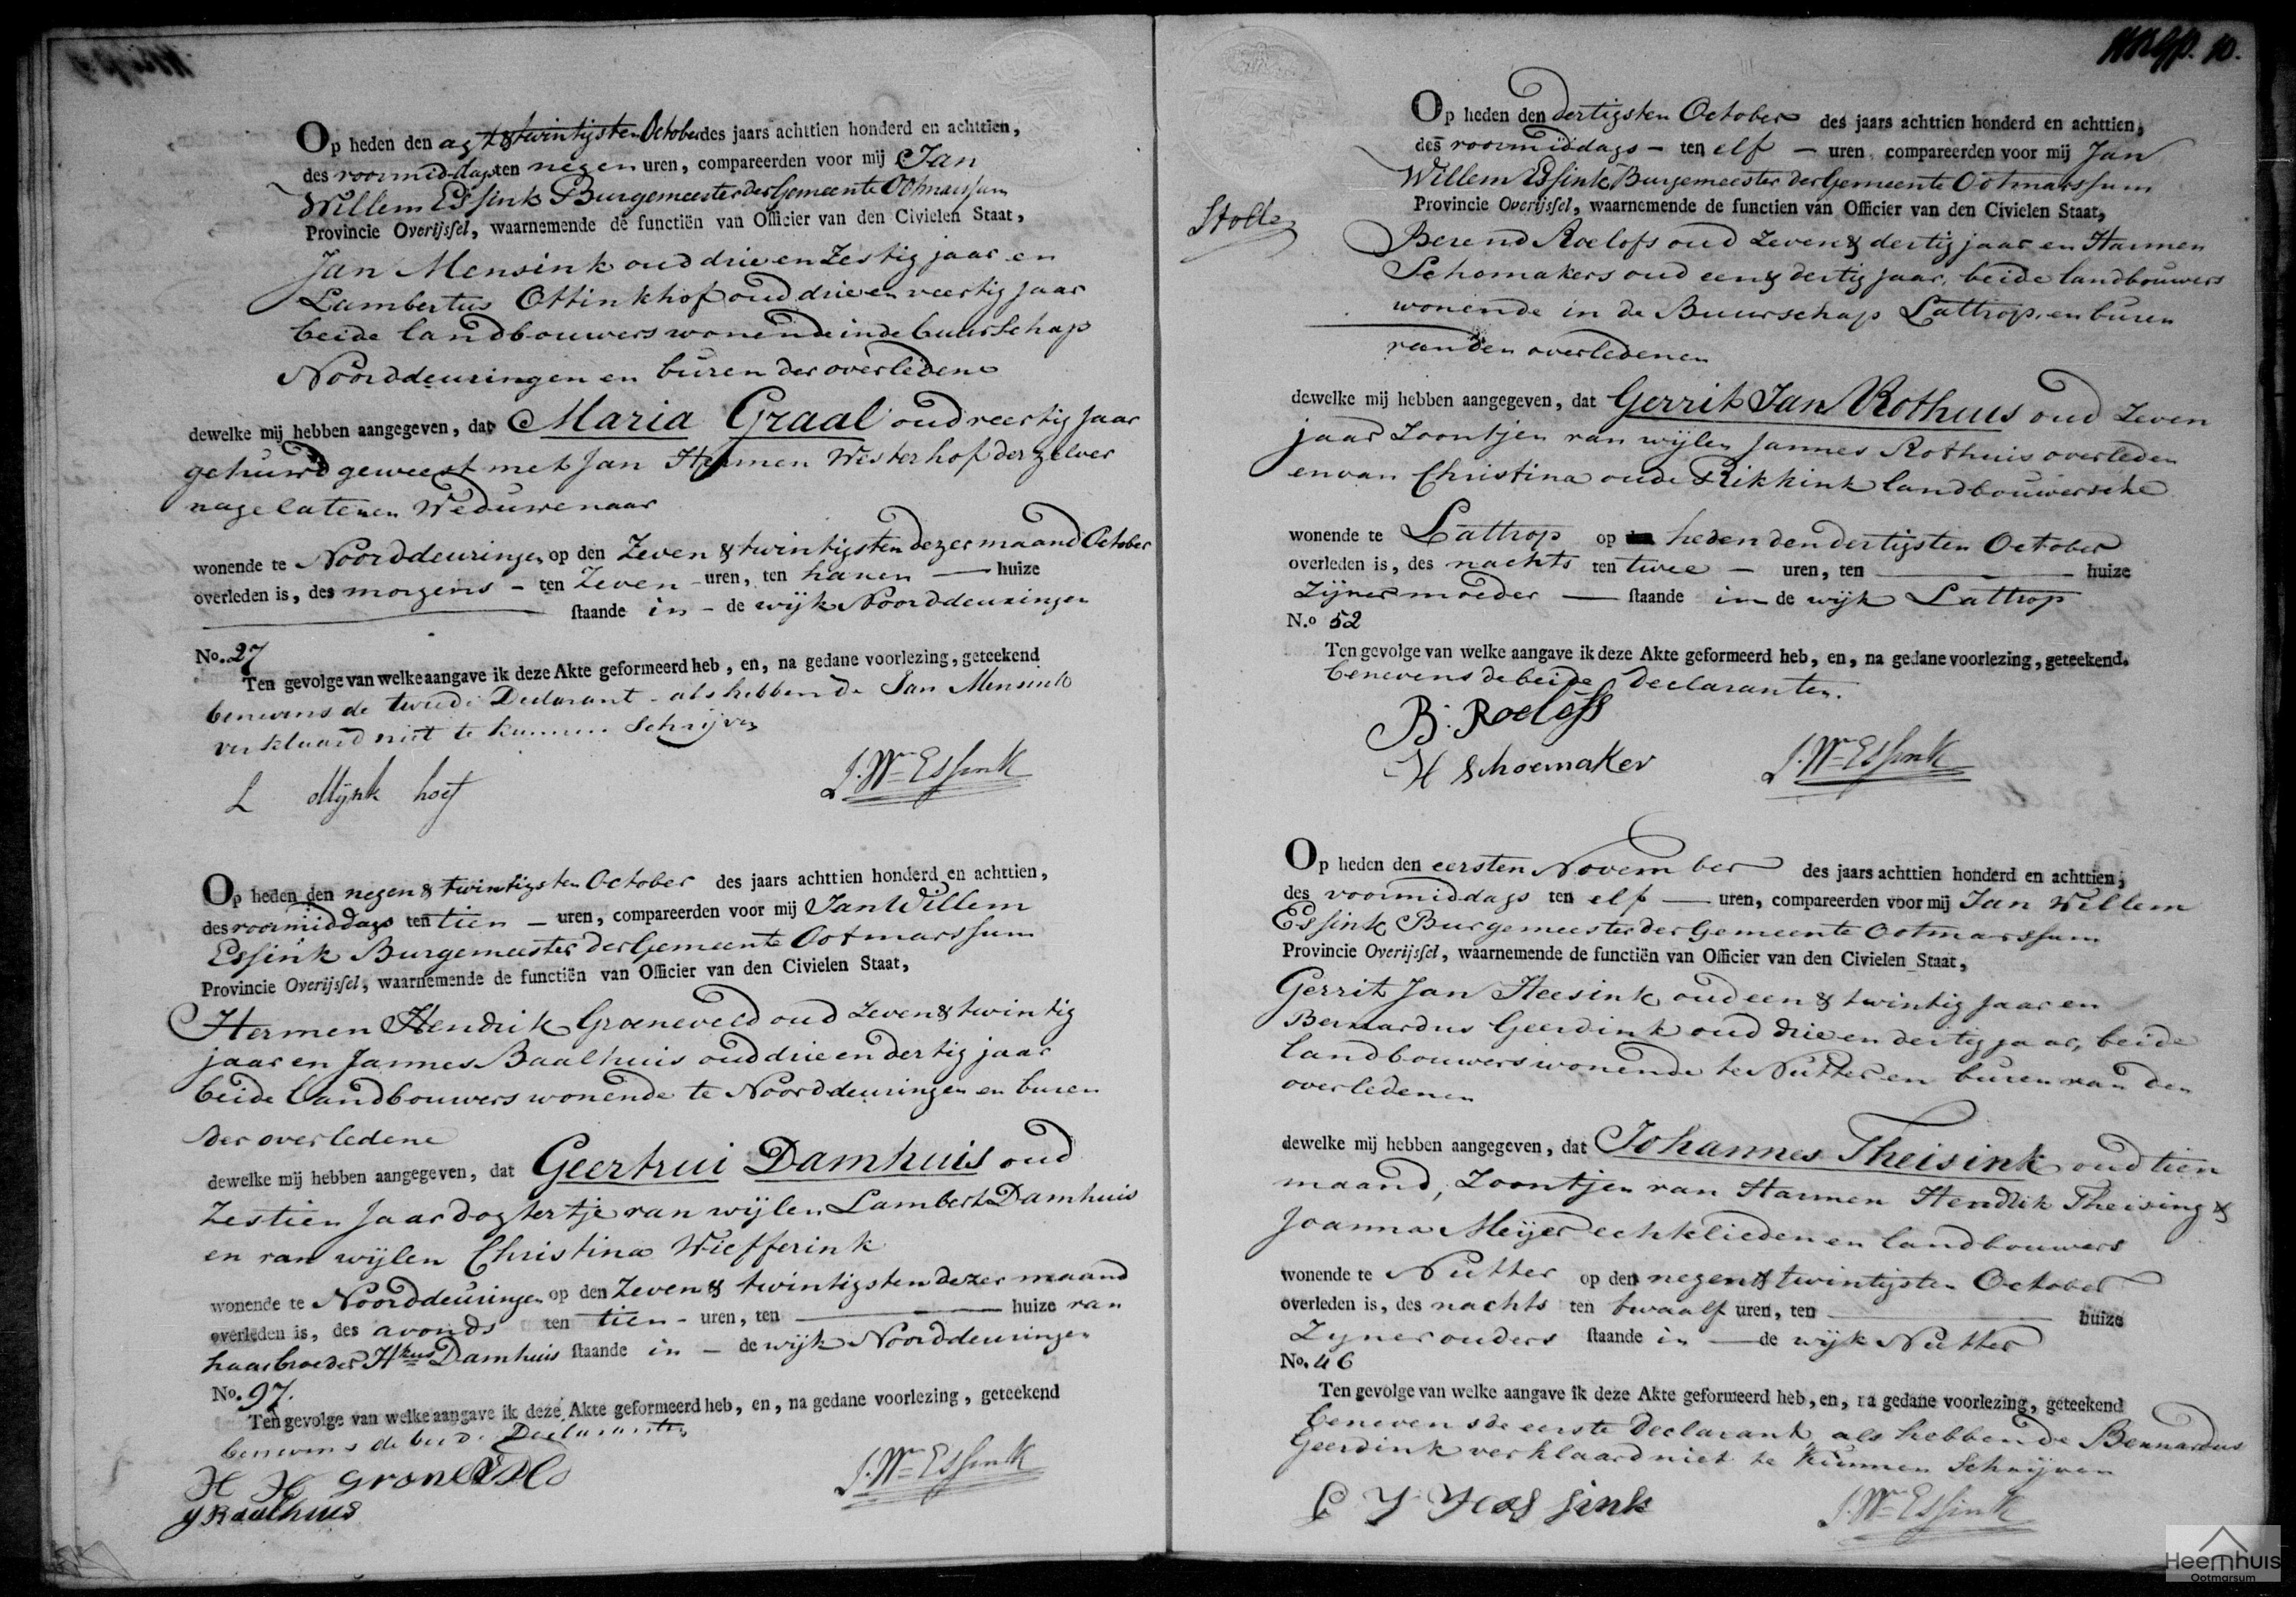 Op heden den agt & twintigsten October des jaars achttien honderd en achttien,
des voormiddags ten negen uren, compareerden voor mij Jan
Willem Essink Burgemeester der Gemeente Ootmarssum
Provincie Overijssel, waarnemende de functiën van Officier van den Civielen Staat,
Jan Mensink oud drie en Zestig jaar en
Lambertus Ottinkhof oud drie en veertig jaar
beide landbouwers wonende in de buurschap
Noorddeuringen en buren der overledene
dewelke mij hebben aangegeven, dat Maria Graal oud veertig Jaar
gehuwd geweest met Jan Hermen Westerhof derzelver
nagelatenen Weduwenaar
wonende te Noorddeuringen op den Zeven & twintigsten dezer maand October
overleden is, des morgens - ten Zeven - uren, ten haren huize
staande in - de wijk Noorddeuringen
No. 27
Ten gevolge van welke aangave ik deze Akte geformeerd heb, en, na gedane voorlezing, geteekend
benevens de tweede Declarant - als hebbende Jan Mensink
verklaard niet te kunnen Schrijven
L hoef
J. Wm Essink
Op heden den negen & twintigsten October des jaars achttien honderd en achttien,
des voormiddags ten tien - uren, compareerden voor mij Jan Willem
Essink Burgemeester der Gemeente Ootmarssum
Provincie Overijssel, waarnemende de functiën van Officier van den Civielen Staat,
Hermen Hendrik Groeneveld oud Zeven & twintig
jaar en Jannes Baalhuis oud drie en dertig jaar
beide Landbouwers wonende te Noorddeuringen en buren
der overledene
dewelke mij hebben aangegeven, dat Geertrui Damhuis oud
Zestien Jaar dogtertje van wijlen Lambert Damhuis
en van wijlen Christina Wiefferink
wonende te Noorddeuringen op den Zeven & twintigsten dezer maand
overleden is, des avonds ten tien - uren, ten huize van
haar broeder Hkus Damhuis staande in - de wijk Noorddeuringen
No. 97.
Ten gevolge van welke aangave ik deze Akte geformeerd heb, en, na gedane voorlezing, geteekend
benevens de beide Declaranten
H H
J Baalhuis
J. Wm Essink
10.
Op heden den dertigsten October des jaars achttien honderd en achttien,
des voormiddags - ten elf - uren, compareerden voor mij Jan
Willem Essink Burgemeester der Gemeente Ootmarssum
Provincie Overijssel, waarnemende de functien van Officier van den Civielen Staat,
Berend Roelofs oud Zeven & dertig jaar en Harmen
Schomakers oud een & dertig jaar, beide landbouwers
wonende in de Buurschap Lattrop, en buren
van den overledenen
dewelke mij hebben aangegeven, dat Gerrit Jan Rothuis oud Zeven
jaar Zoontjen van wijlen Jannes Rothuis overleden
en van Christina oude Rikkink landbouwersche
wonende te Lattrop op heden den dertigsten October
overleden is, des nachts ten twee - uren, ten huize
Zijner moeder staande in de wijk Lattrop
N.o 52
Ten gevolge van welke aangave ik deze Akte geformeerd heb, en, na gedane voorlezing, geteekend.
benevens de beide Declaranten.
B: Roelofs
H Schoemaker
J. Wm Essink
Op heden den eersten November des jaars achttien honderd en achttien,
des voormiddags ten elf uren, compareerden voor mij Jan Willem
Essink Burgemeester der Gemeente Ootmarssum
Provincie Overijssel, waarnemende de functiën van Officier van den Civielen Staat,
Gerrit Jan Heesink oud een & twintig Jaar en
Bernardus Geerdink oud drie en dertig jaar, beide
landbouwers wonende te Nutter en buren van den
overledenen
dewelke mij hebben aangegeven, dat Johannes Theisink oud tien
maand, Zoontjen van Harmen Hendrik Theising &
Joanna Meijer echtelieden en landbouwers
wonende te Nutter op den negen & twintigsten October
overleden is, des nachts ten twaalf uren, ten huize
Zyner ouders staande in de wijk Nutter
No. 46
Ten gevolge van welke aangave ik deze Akte geformeerd heb, en, na gedane voorlezing, geteekend
benevens de eerste Declarant, als hebbende Bernardus
Geerdink verklaard niet te Kunnen Schrijven
J. Wm Essink
Heemhuis
Ootmarsum